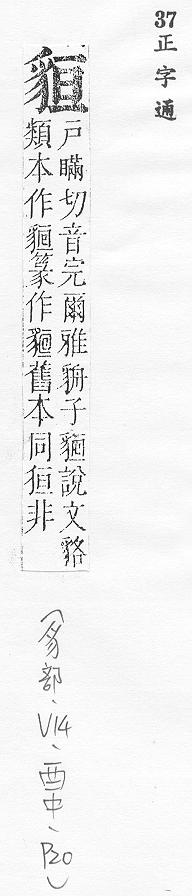 37
正字通
貆
戶瞞切音完爾雅貈子貆說文貉
類本作篆作舊本同狟非
(豸部、V14、酉中、P20)